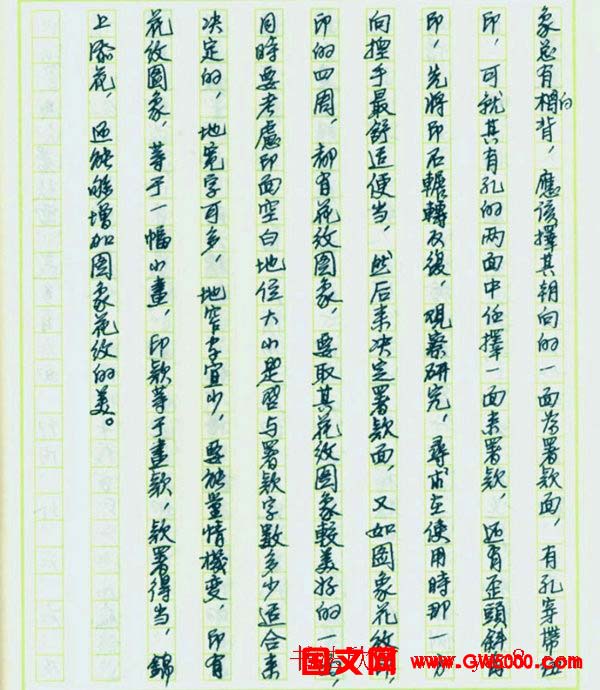 象总有相向背，應该擇其朝向的一面为署款面，有孔穿带
印，可就其有孔的两面中任擇一面来署款，还有歪頭斜
印，先將印石輾轉反後，观察研究，尋求在使用時那一方
向捏手最舒适便当，然后来决定署款面，又如图象花纹
印的四周，都有花纹图象，要取其花纹图象較美好的一
同時要考慮印面空白地位大小是否与署款字數多少适合来
决定的，地宽字可多，地窄字宜少，要能量情機变，印有
花纹图象，等于一幅小畫，印款等于畫款，款署得当，錦
上添花，还能够增加图象花纹的美。
国文网 www.GW5000.com